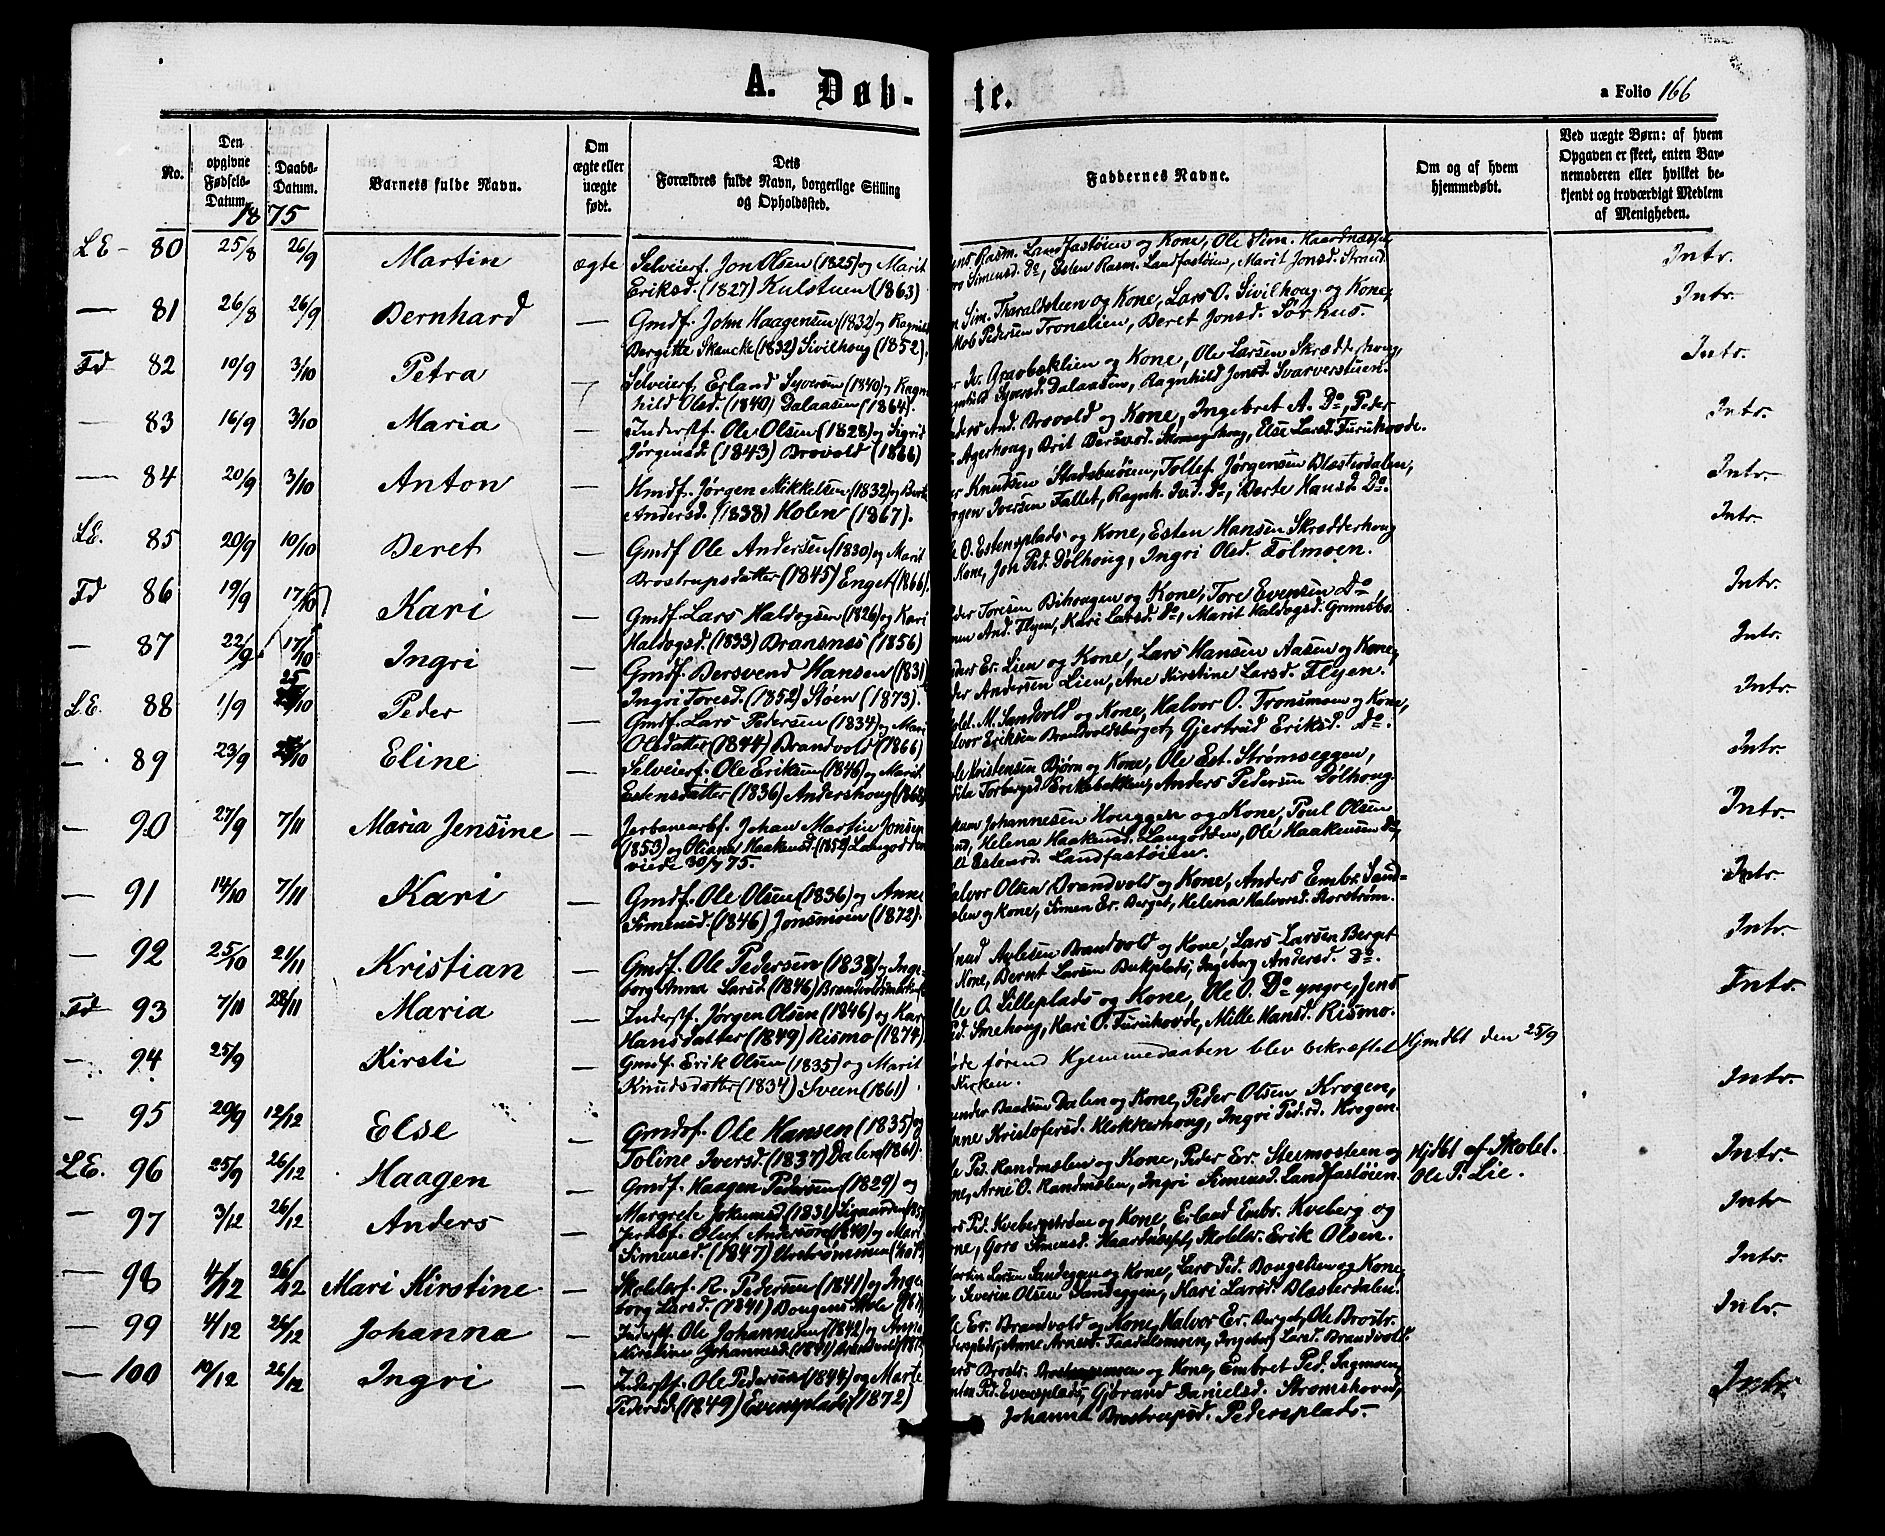 A. Døb-te.
a Folio 166
No.
Den opgivne Fødsels-Datum.
Daabs-Datum.
Barnets fulde Navn.
Om ægte eller uægte født.
Dets Forældres fulde Navn, borgerlige Stilling og Opholdssted.
Faddernes Navne.
Om og af hvem hjemmedøbt.
Ved uægte Børn: af hvem Opgaven er skeet, enten Barnemoderen eller hvilket bekjendt og troværdigt Medlem af Menigheden.
1875
LE - 80 25/8 26/9 Martin ægte Selveierf. Jon Olsen (1825) og Marit
Eriksd. (1827) Kulstuen (1863)
Rasm. Landfastøien og Kone, Ole Sim.
Simensd. Do, Esten Rasm. Landfastøien, Marit Jonsd. Strand
Intr.
— 81 26/8 26/9 Bernhard — Gmdf. John Haagensen (1832) og
Bergitte Skancke (1832) Sivilhoug (1852).
Sim. Tharaldsteen og Kone, Lars O. Sivilhoug og Kone,
Pedersen Tronslien, Beret Jonsd. Torhus.
Intr.
Fd 82 10/9 3/10 Petra Selveierf. Erland Syversen (1840) og Ragn-
hild Olsd. (1840) Dalaasen (1864).
Graabæklien og Kone, Ole Larsen Skrædderhoug,
Syversd. Dalaasen, Ragnhild Jonsd. Svarverstuen.
Intr.
— 83 16/9 3/10 Maria — Inderstf. Ole Olsen (1828) og Sigrid
Jørgensd. (1843) Brovold (1866)
And. Brovold og Kone, Ingebret A. Do, Peder
Agerhoug, Brit Bersvd. Else Larsd. Furuhovde.
Intr.
— 84 20/9 3/10 Anton — Hmdf. Jørgen Mikkelsen (1832) og
Andersd. (1838) Holen (1867).
Knudsen Stadsbuøien, Tollef Jørgensen Blæsterdalen,
Iversen Fallet, Ragnh. Ivd. Do, Berte Hansd. Do.
Intr.
LE. 85 20/9 10/10 Beret — Gmdf Ole Andersen (1830) og Marit
Brostrupsdatter (1845) Enget (1866).
O. Estensplads og Kone, Esten Hansen Skrædderhoug
Kone, Jon Ped. Dølhoug, Ingri Olsd. Tolmoen.
Intr.
Fd 86 19/9 17/10 Kari — Gmdf. Lars Haldogsen (1826) og Kari
Haldogsd. (1833) Bransnæs (1856)
Toresen Bihaugen og Kone, Tore Evensen Do
And. Flyen, Kari Larsd. Do, Marit Haldogsd. Grimsbo.
Intr.
— 87 22/9 17/10 Ingri — Gmdf. Bersvend Hansen (1831)
Ingri Toresd. (1852) Støen (1873).
Er. Lien og Kone, Lars Hansen Aasen og Kone,
Andersen Lien, Ane Kirstine Larsd. Flyen.
Intr.
LE. 88 1/9 25/10 Peder — Gmdf. Lars Pedersen (1834) og Mari
Olsdatter (1844) Brandvold (1866)
M. Sandvold og Kone, Halvor O. Tronsmoen og Kone,
Eriksen Brandvoldsberget, Gjertrud Eriksd. Do.
Intr.
— 89 23/9 Eline — Selveierf. Ole Eriksen (1846) og Marit
Estensdatter (1836) Andershoug (1868)
Kristensen Bjørn og Kone, Ole Est. Strømseggen,
Torbergsd. Eriksbakken, Anders Pedersen Dølhoug.
Intr.
— 90 27/9 7/11 Maria Jensine — Jerbanearbf. Johan Martin Jonsen
(1853) og Oliana Haakensd. (1852) Langodden
viede 30/7 75.
Johannesen Houggen og Kone, Poul Olsen
Helena Haakensd. Langodden, Ole Haakensen Do,
Estensd. Landfastøien.
Intr.
— 91 14/10 7/11 Kari — Gmdf. Ole Olsen (1836) og Anne
Simensd. (1846) Jonsmoen (1872).
Olsen Brandvold og Kone, Anders Embr. Sand-
og Kone, Simen Er. Berget, Helena Halvorsd. Korstrøm.
Intr.
— 92 25/10 21/11 Kristian — Gmdf. Ole Pedersen (1838) og Inge-
borg Anna Larsd. (1846)
Brandvold og Kone, Lars Larsen Berget
Kone, Bernt Larsen Ingeborg Andersd. Do.
Intr.
Fd 93 7/11 28/11 Maria — Inderstf. Jørgen Olsen (1846) og Kari
Hansdatter (1849) Rismo (1874).
O. Lilleplads og Kone, Ole O. Do yngre, Jens
Ped. Smehoug, Kari O. Furuhovde, Mille Hansd. Rismo.
Intr.
— 94 25/9 Kirsti — Gmdf. Erik Olsen (1835) og Marit
Knudsdatter (1834) Sveen (1861).
døde førend Hjemmedaaben blev bekræftet
Kirken.
Hjmdbt den 25/9
— 95 20/9 12/12 Else — Gmdsf. Ole Hansen (1835) og
Toline Iversd. (1837) Dalen (1861).
Dalen og Kone, Peder Olsen Krogen,
Kristofersd. Klokkerhoug, Ingri Pedersd. Krogen.
Intr.
LE. 96 25/9 26/12 Haagen — Gmdf. Haagen Pedersen (1829) og
Margrete (1831)
Ped. Randmælen og Kone, Peder Er. Steimosteen og
Arne O. Randmælen, Ingri Simensd. Landfastøien
Hjdbt af Skolel.
Ole P. Lie.
Intr.
— 97 3/12 26/12 Anders — Jerbbf. Oluf Andersen (1840) og Mari
Simensd. (1847)
Ped. Kvebergstrøm og Kone, Erland Embr. Kveberg og
Kone, Goro Simensd. Skolelr. Erik Olsen.
Intr
— 98 4/12 26/12 Mari Kirstine — Skolelrf. R. Pedersen (1841) og Inge
borg Larsd. (1841) Bougens Skole
Martin Larsen Sandeggen og Kone, Lars Ped. Bougelien og Kone,
Severin Olsen Sandeggen, Kari Larsd. Blæsterdalen.
Intr.
— 99 4/12 26/12 Johanna — Inderstf. Ole Johannesen (1842) og
Kirstine Johannesd. (1841) Brandvold
Er. Brandvold og Kone, Halvor Er. Berget, Ole Brostr.
Anne Arnesd. Taadalsmoen, Ingeborg Larsd. Brandvold.
Intr.
— 100 10/12 26/12 Ingri — Inderstf. Ole Pedersen (1844) og Marte
Pedersd. (1849) Evensplads (1872)
Brostr. og Kone, Embret Ped. Ingmoen,
Ped. Evensplads, Gjbrand Danielsd. Stromshoved,
Johanna Brostrupsd. Pedersplads.
Intr.